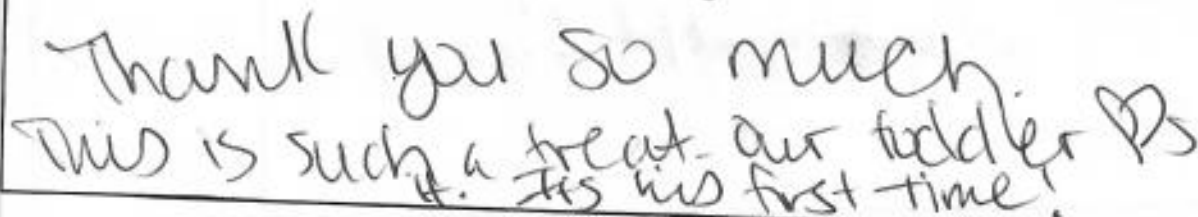 Thank you so much.
This is such a treat. Our toddler ♡s
it. Its his first time!